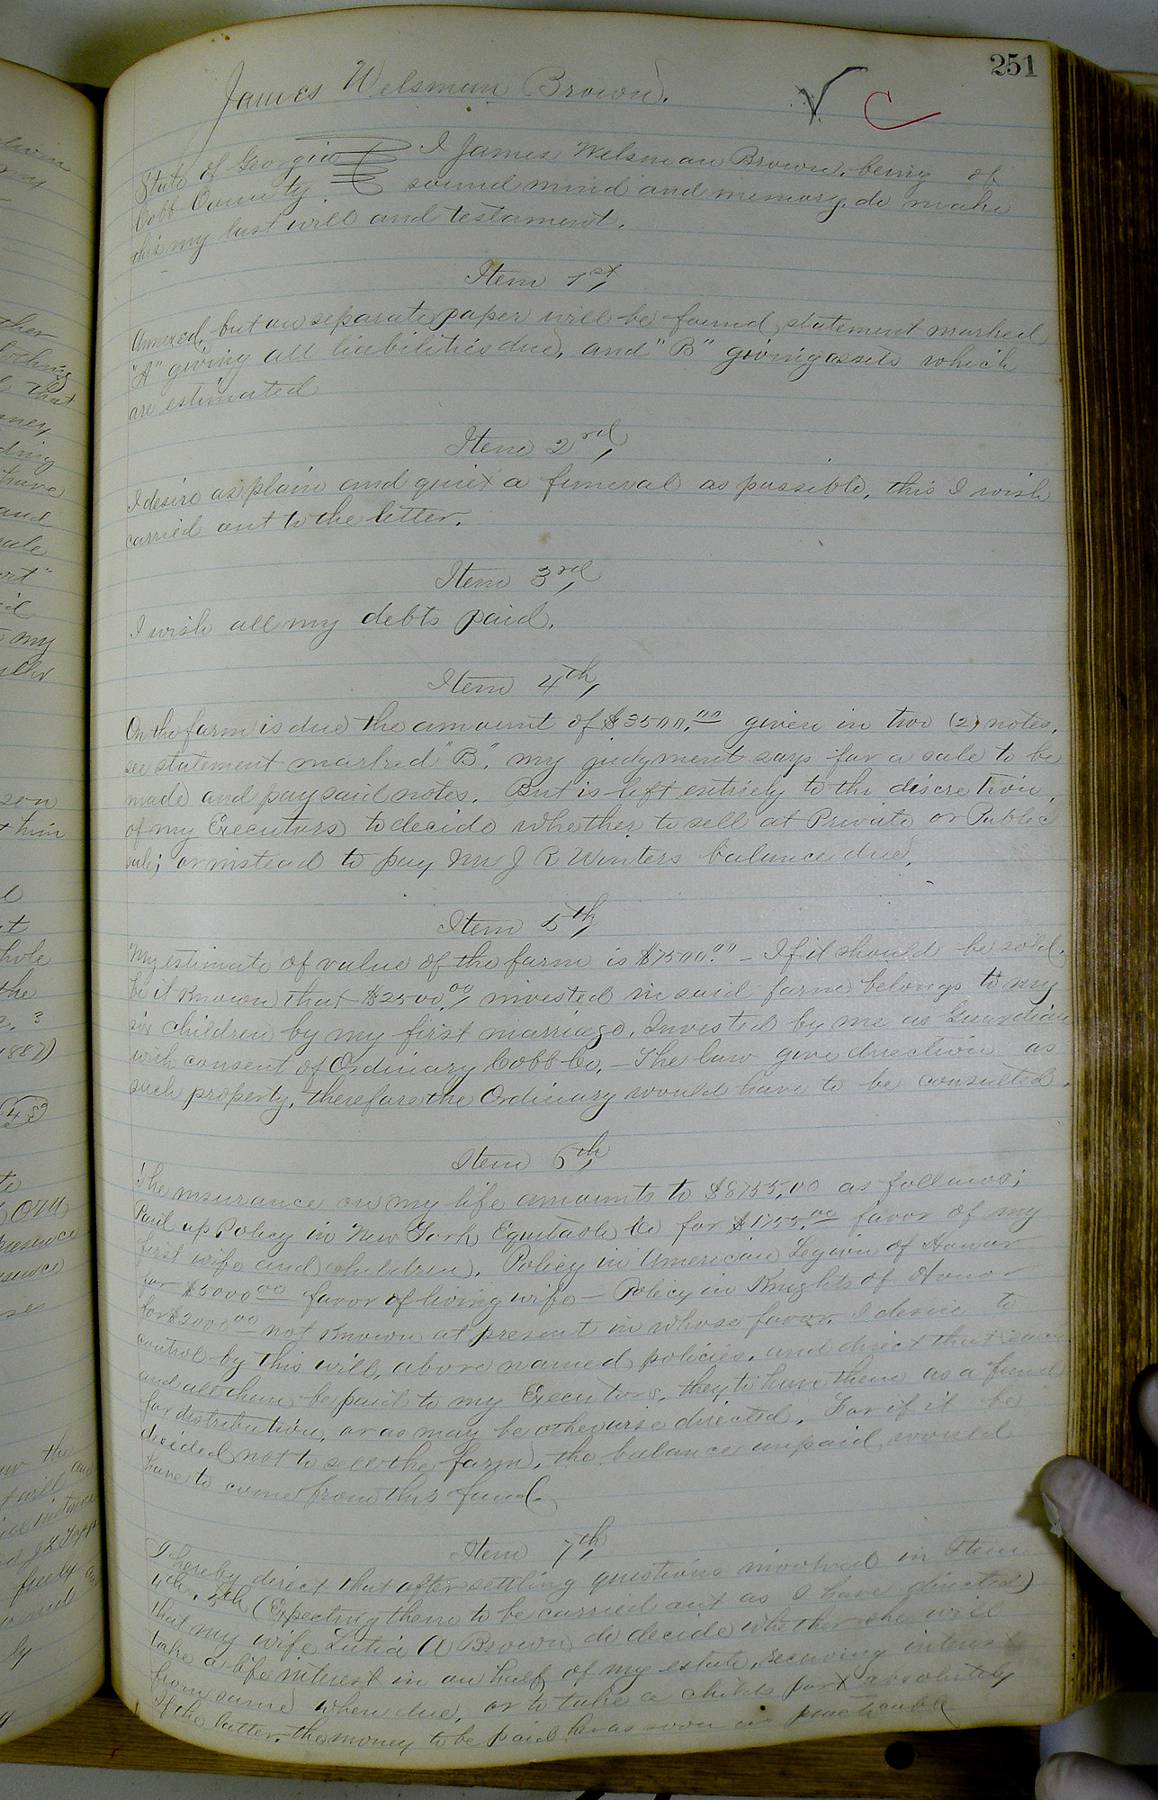 251
James Welsman Brown.
State of Georgia I James Welsman Brown, being of
Cobb County. sound mind and memory, do make
this my last will and testament.
Item 1st,
Annexed, but on separate paper will be found, statement marked
"A" giving all liabilities due, and "B" giving assets which
are estimated
Item 2nd,
I desire as plain and quiet a funeral as possible, this I wish
carried out to the letter.
Item 3rd,
I wish all my debts paid.
Item 4th,
On the farm is due the amount of $3500.00 given in two (2) notes,
see statement marked "B". my judgment says for a sale to be
made and pay said notes. But is left entirely to the discretion
of my Executors to decide whether to sell at Private or Public
sale; or instead to pay Mr J R Winters balance due.
Item 5th,
My estimate of value of the farm is $7500.00 - If it should be sold.
be it known that $2500.00, invested in said farm belongs to my
six children by my first marriage. Invested by me as Guardian
with consent of Ordinary Cobb Co. - The law give direction as
such property, therefore the Ordinary would have to be consulted.
Item 6th,
The insurance on my life amounts to $8755.00 as follows;
Paid up Policy in New York Equitable Co for $1755.00 favor of my
first wife and children. Policy in American Legion of Honor
for $5000.00 favor of living wife - Policy in Knights of Honor
for $2000.00 not known at present in whose favor. I desire to
control by this will, above named policies. and direct that each
and all them be paid to my Executors, they to have them as a fund
for distribution, or as may be otherwise directed. For if it be
decided not to sell the farm, the balance unpaid, would
have to come from this fund.
Item 7th,
I hereby direct that after settling questions involved in Item
4th, 5th (Expecting them to be carried out as I have directed)
that my wife Lutia A Brown do decide whether she will
take a life interest in an half of my estate, receiving interest
from same when due, or to take a childs part absolutely
If the latter, the money to be paid her as soon as practicable